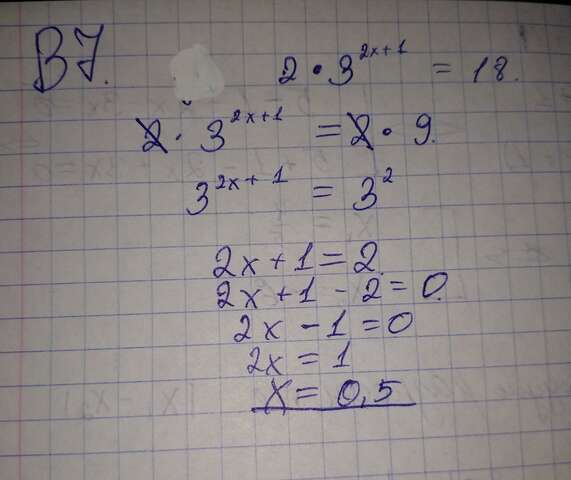 В7. 2 · 3^{2x+1} = 18.
2 · 3^{2x+1} = 2 · 9.
3^{2x+1} = 3^2
2x + 1 = 2.
2x + 1 - 2 = 0.
2x - 1 = 0
2x = 1
x = 0,5